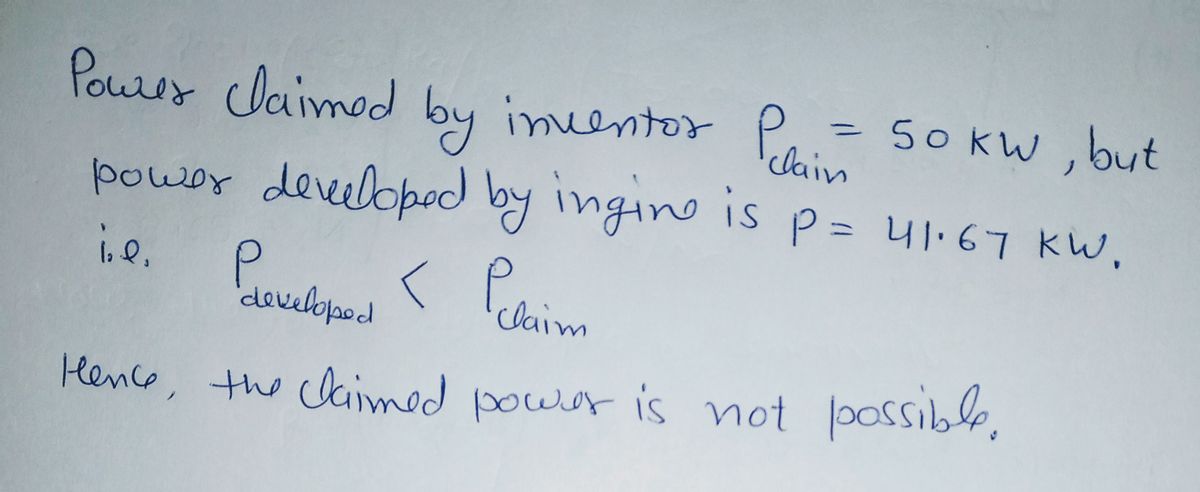 Power claimed by inventor P claim = 50 KW , but
power developed by ingine is P = 41.67 KW.
i.e. P developed < P claim
Hence, the claimed power is not possible.